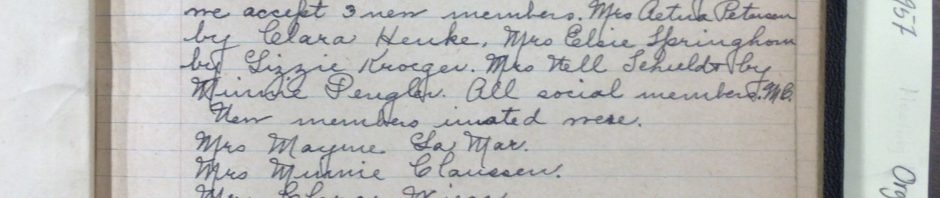 we accept 3 new members. Mrs Petersen
by Clara Henke, Mrs Elsie Springhorn
by Lizzie Kroeger. Mrs Nell Schuldt by
Minnie Penglow. All social members. M.C.
New members iniated were.
Mrs Mayme La Mar.
Mrs Minnie Claussen.
Mrs
957
Org